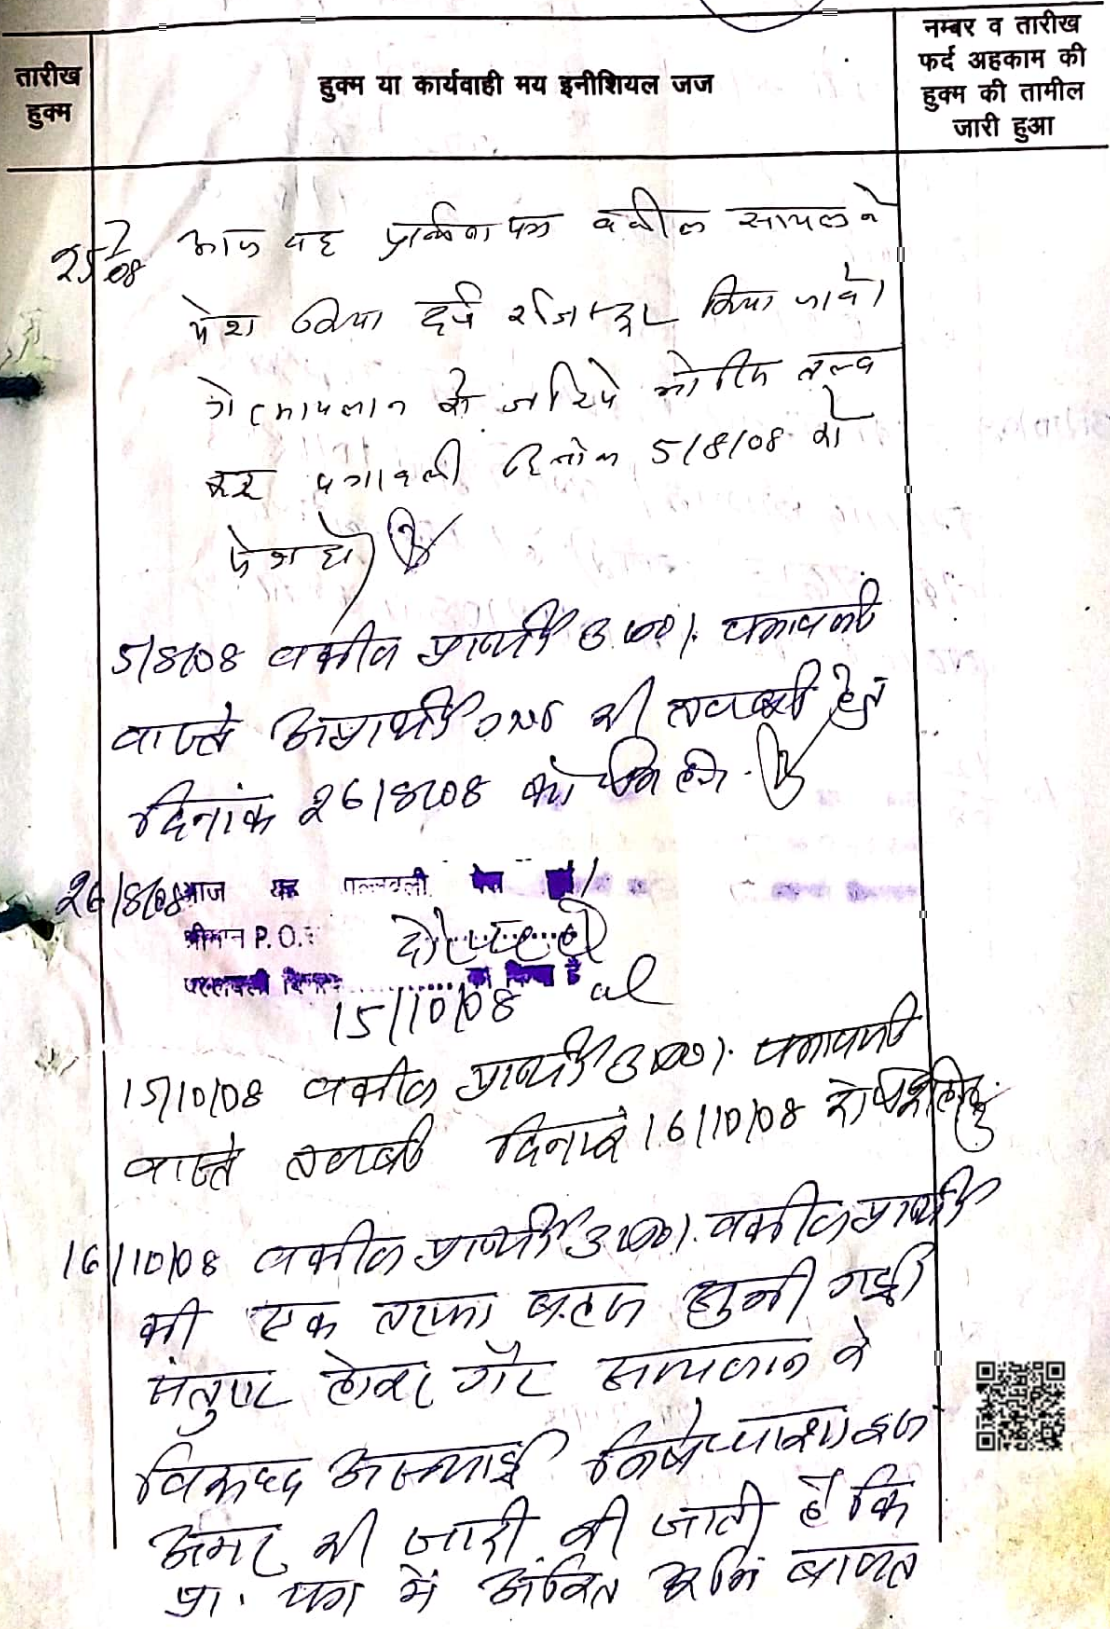 तारीख हुक्म
हुक्म या कार्यवाही मय इनीशियल जज
नम्बर व तारीख
फर्द अहकाम की
हुक्म की तामील
जारी हुआ
25/7/08 आज यह प्रार्थना पत्र वकील सायल ने
पेश किया दर्ज रजिस्टर किया जावे।
गै. सायलान को जरिये नोटिस तलब
कर पत्रावली दिनांक 5/8/08 को
पेश हो
5/8/08 वकील प्रार्थी उप०। पत्रावली
वास्ते अप्रार्थी की तलबी हेतु
दिनांक 26/8/08 को पेश होवे
26/8/08 आज यह पत्रावली पेश हुई
श्रीमान P.O.: दौरे पर है
पत्रावली दिनांक .......... को किया है
15/10/08
15/10/08 वकील प्रार्थी उप०। पत्रावली
वास्ते तलबी दिनांक 16/10/08 को पेश हो
16/10/08 वकील प्रार्थी उप०। वकील प्रार्थी
की एक तरफा बहस सुनी गई
संतुष्ट होकर गैर सायलान के
विरूध्द अस्थाई निषेधाज्ञा इस
अमर की जारी की जाती है कि
प्रा. पत्र में अंकित भूमि बाबत